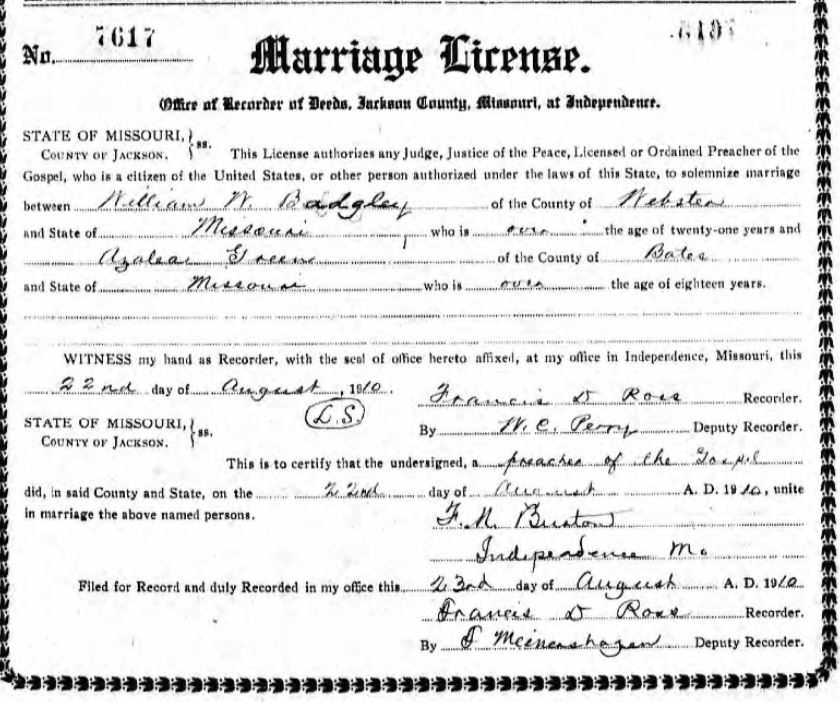 No. 7617
Marriage License.
Office of Recorder of Deeds, Jackson County, Missouri, at Independence.
STATE OF MISSOURI, } ss.
COUNTY OF JACKSON.
This License authorizes any Judge, Justice of the Peace, Licensed or Ordained Preacher of the
Gospel, who is a citizen of the United States, or other person authorized under the laws of this State, to solemnize marriage
between William W. Badgley of the County of Webster
and State of Missouri, who is over the age of twenty-one years and
Azalear Green of the County of Bates
and State of Missouri who is over the age of eighteen years.
WITNESS my hand as Recorder, with the seal of office hereto affixed, at my office in Independence, Missouri, this
22nd day of August, 1910.
Francis D Ross Recorder.
(L.S.)
By W. C. Perry Deputy Recorder.
STATE OF MISSOURI, } ss.
COUNTY OF JACKSON.
This is to certify that the undersigned, a preacher of the Gospel
did, in said County and State, on the 22nd day of August A. D. 1910, unite
in marriage the above named persons.
F. M. Burton
Independence Mo
Filed for Record and duly Recorded in my office this 23rd day of August A. D. 1910
Francis D Ross Recorder.
By F Meinershagen Deputy Recorder.